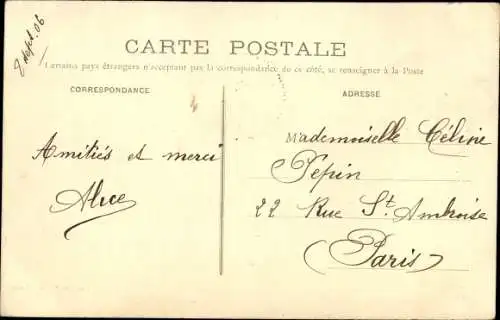 2 sept. 06
CARTE POSTALE
Certains pays étrangers n'acceptant pas la correspondance de ce côté, se renseigner à la Poste
CORRESPONDANCE
ADRESSE
Amitiés et merci
Alice
Mademoiselle Céline
Pépin
22 Rue St. Ambroise
(Paris)